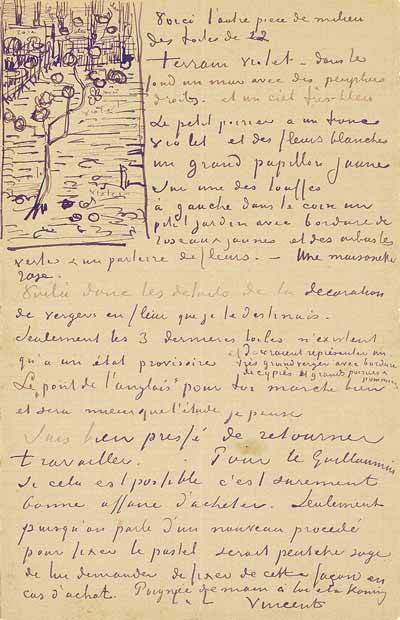 Voici l'autre piece de milieu
des toiles de 12
terrain violet – dans le
fond un mur avec des peupliers
droits. et un ciel très bleu
Le petit poirier a un tronc
violet et des fleurs blanches
un grand papillon jaune
sur une des touffes
à gauche dans le coin un
petit jardin avec bordure de
roseaux jaunes et des arbustes
verts & un parterre de fleurs. – Une maisonette
rose.
Voilà donc les details de la decoration
de vergers en fleur que je te destinais.
Seulement les 3 dernieres toiles n'existent
qu'a un état provisoire et devraient représenter un
très grand verger avec bordure
de cyprès et grands poiriers & pommiers
Le „pont de l'anglais” pour toi marche bien
et sera mieux que l'étude je pense
Suis bien pressé de retourner
travailler. Pour le Guillaumin
si cela est possible c'est surement
bonne affaire d'acheter. Seulement
puisqu'on parle d'un nouveau procedé
pour fixer le pastel serait peutetre sage
de lui demander de fixer de cette façon en
cas d'achat. Poignée de main à toi et à Koning
t. à t. Vincent
rose
violet
violet